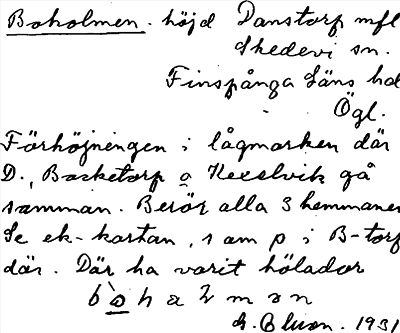 Boholmen. höjd Danstorp mfl
Skedevi sn.
Finspånga Läns hd
Ögl.
Förhöjningen i lågmarken där
D., Basketorp o Hecelvik gå
samman. Berör alla 3 hemmanen
Se ek-kartan, s am p i B-torp
där. Där ha varit hölador
1931